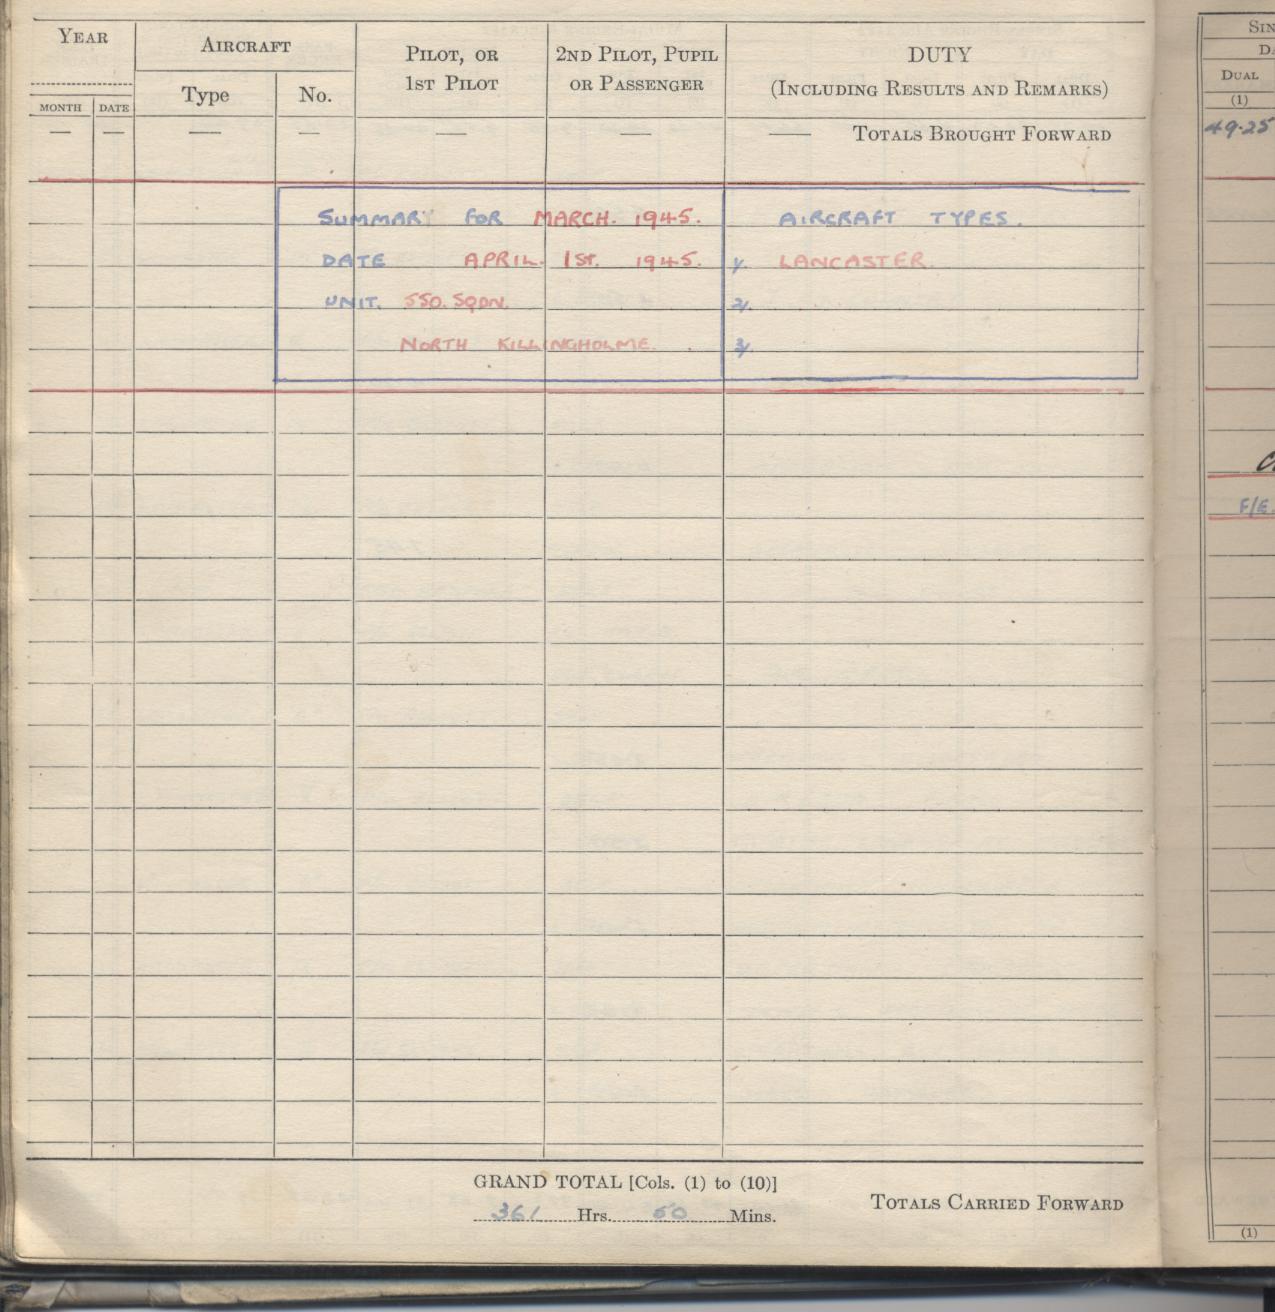 YEAR
AIRCRAFT
PILOT, OR
1ST PILOT
2ND PILOT, PUPIL
OR PASSENGER
DUTY
(INCLUDING RESULTS AND REMARKS)
MONTH DATE Type No.
— — — — — — — TOTALS BROUGHT FORWARD
SUMMARY FOR MARCH. 1945. AIRCRAFT TYPES.
DATE APRIL. 1ST. 1945. 1/. LANCASTER.
UNIT. 550. SQDN. 2/.
NORTH KILLINGHOLME. 3/.
GRAND TOTAL [Cols. (1) to (10)]
361 Hrs. 50 Mins.
TOTALS CARRIED FORWARD
DUAL
(1)
49.25
F/E.
(1)